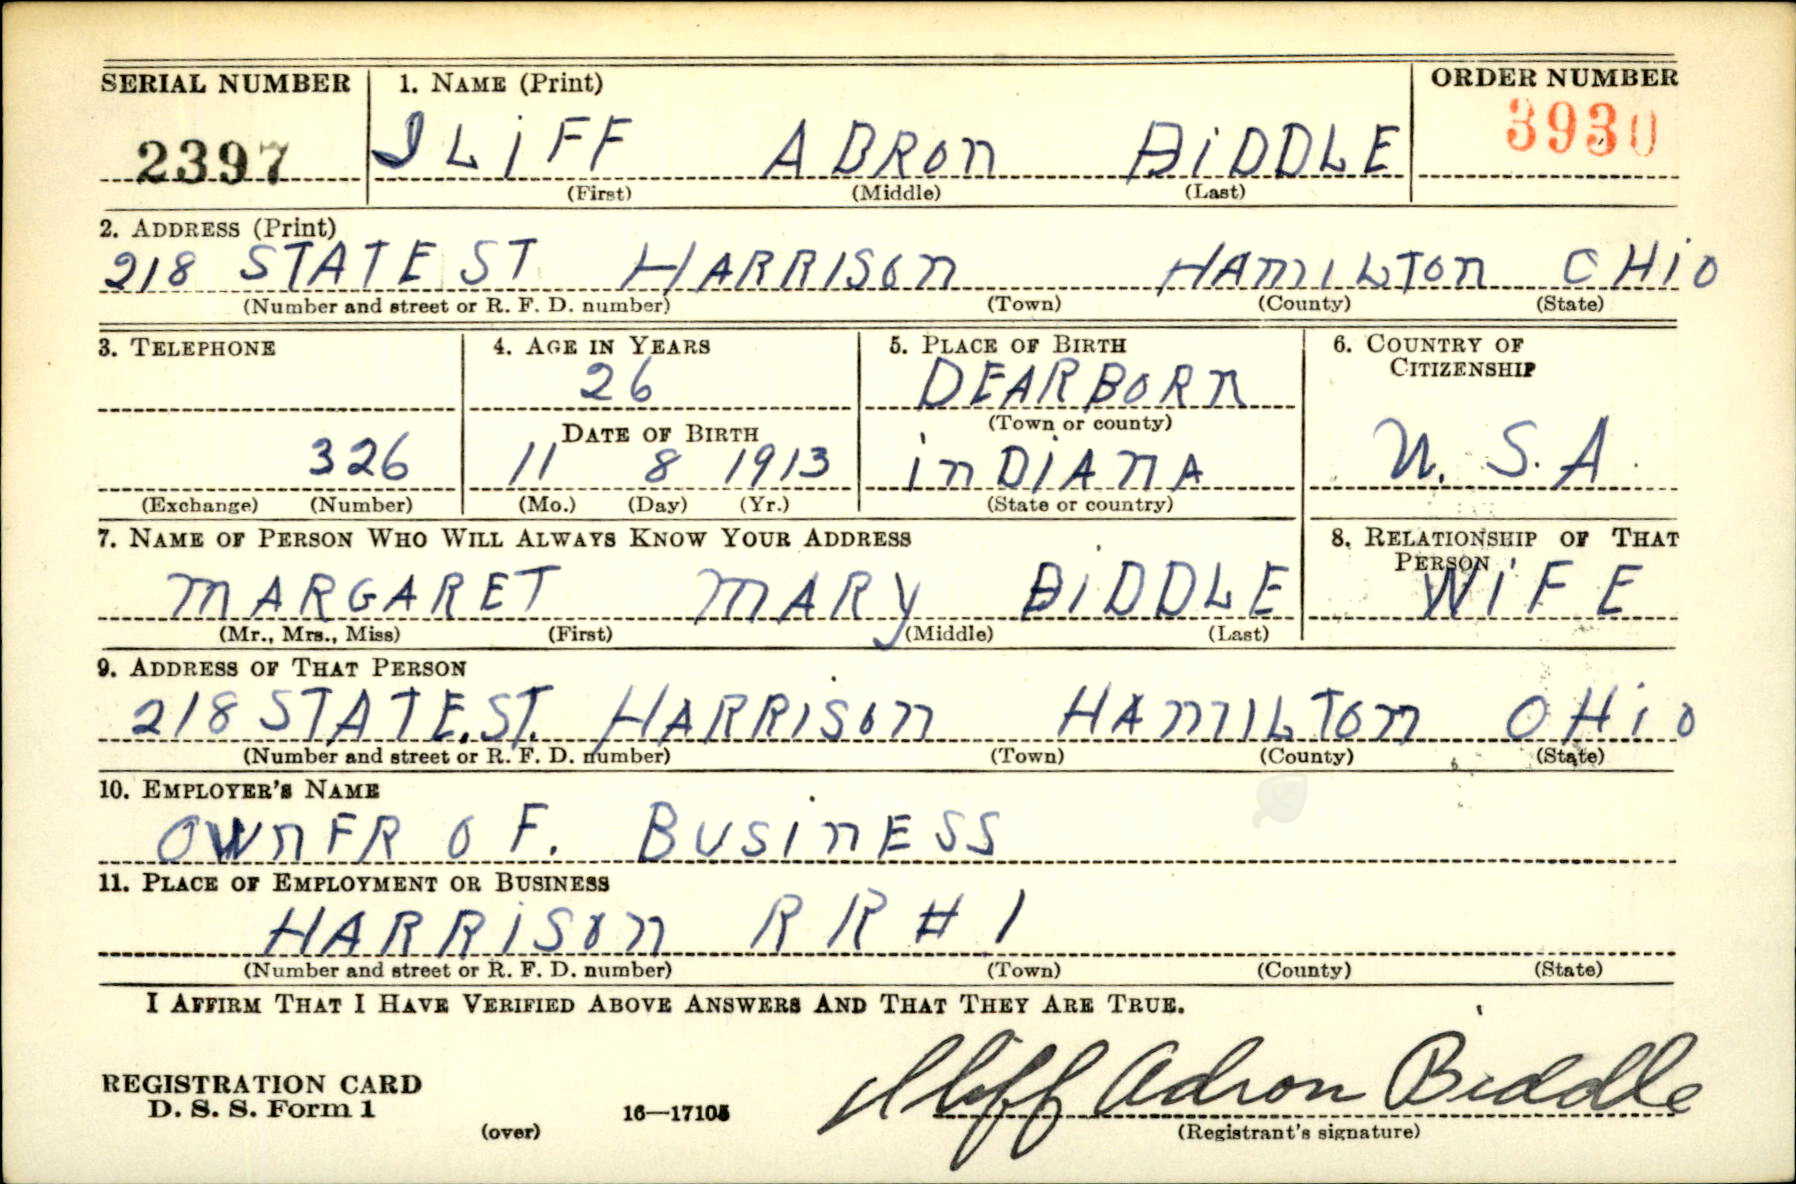 SERIAL NUMBER 1. NAME (Print) ORDER NUMBER
2397 ILIFF ADRON BIDDLE 3930
(First) (Middle) (Last)
2. ADDRESS (Print)
218 STATE ST HARRISON HAMILTON OHIO
(Number and street or R. F. D. number) (Town) (County) (State)
3. TELEPHONE 4. AGE IN YEARS 5. PLACE OF BIRTH 6. COUNTRY OF CITIZENSHIP
26 DEARBORN
DATE OF BIRTH (Town or county)
326 11 8 1913 INDIANA U. S. A.
(Exchange) (Number) (Mo.) (Day) (Yr.) (State or country)
7. NAME OF PERSON WHO WILL ALWAYS KNOW YOUR ADDRESS 8. RELATIONSHIP OF THAT PERSON
MARGARET MARY BIDDLE WIFE
(Mr., Mrs., Miss) (First) (Middle) (Last)
9. ADDRESS OF THAT PERSON
218 STATE. ST. HARRISON HAMILTON OHIO
(Number and street or R. F. D. number) (Town) (County) (State)
10. EMPLOYER'S NAME
OWNER OF. BUSINESS
11. PLACE OF EMPLOYMENT OR BUSINESS
HARRISON RR # 1
(Number and street or R. F. D. number) (Town) (County) (State)
I AFFIRM THAT I HAVE VERIFIED ABOVE ANSWERS AND THAT THEY ARE TRUE.
REGISTRATION CARD Iliff Adron Biddle
D. S. S. Form 1 16—17105
(over) (Registrant's signature)